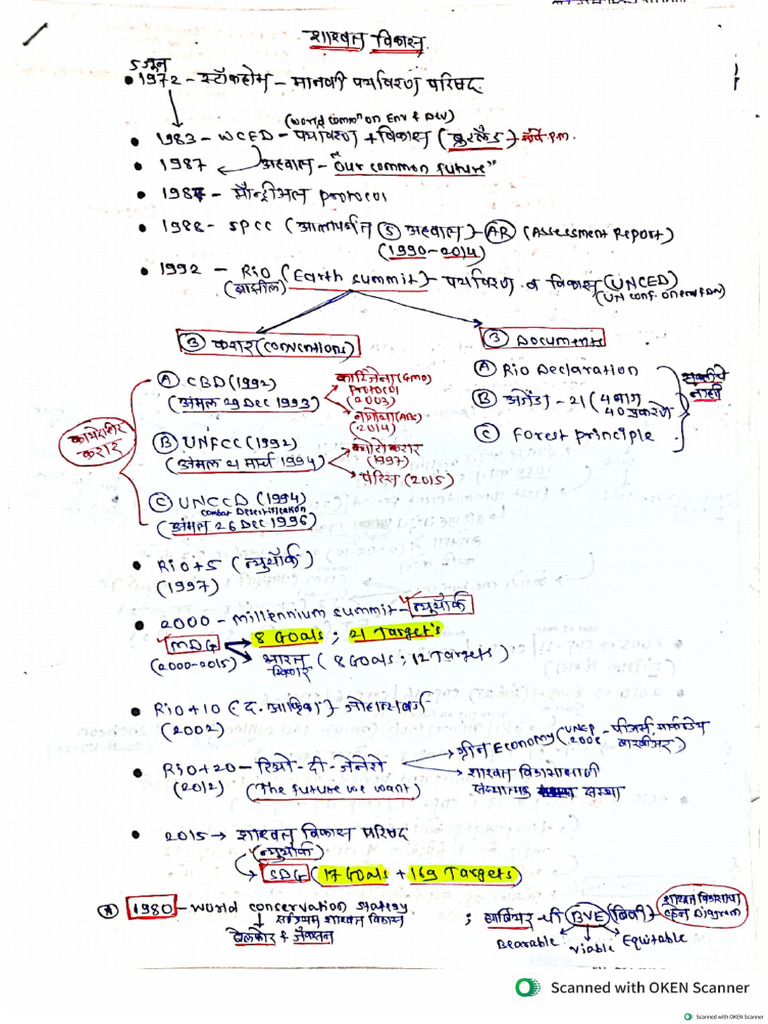 शाश्वत विकास
5 जून
• 1972 - स्टॉकहोम - मानवी पर्यावरण परिषद
(World Commn on Env & Dev)
• 1983 - WCED - पर्यावरण + विकास (ब्रुटलँड) → नॉर्वे P.M.
• 1987 अहवाल - "Our common future"
• 1987 - मॉन्ट्रीअल Protocol
• 1988 - SPCC (आतापर्यंत 5 अहवाल) - AR (Assessment Report)
(1990-2014)
• 1992 - Rio (Earth summit) - पर्यावरण व विकास (UNCED)
(ब्राझील) (UN conf. on env & Dev)
③ करार (conventions) ③ Documents
Ⓐ CBD (1992) कार्टाजेना (GMO) Protocol (2003)
(अंमल 29 Dec 1993) नागोया (ABC) (2014)
Ⓐ Rio Declaration
Ⓑ अजेंडा - 21 (4 भाग 40 प्रकरणे)
Ⓒ Forest principle
सक्तीचे नाही
कायदेशीर करार
Ⓑ UNFCC (1992) क्योटो करार (1997)
(अंमल 21 मार्च 1994) पॅरिस (2015)
Ⓒ UNCCD (1994)
Combat Desertification
(अंमल 26 Dec 1996)
• Rio+5 (न्युयॉर्क)
(1997)
• 2000 - millennium summit - न्यूयॉर्क
MDG → 8 Goals ; 21 Target's
(2000-2015) भारत (8 Goals ; 12 Targets)
स्विकार
• Rio+10 (द. आफ्रिका) - जोहान्सबर्ग
(2002)
• Rio+20 - रिओ-दी-जेनेरो → ग्रीन Economy (UNEP 2008 - पीअर्स, मार्कंडेय बारबीअर)
(2012) (The future we want) → शाश्वत विकासासाठी
संख्यात्मक संस्था
• 2015 → शाश्वत विकास परिषद
(न्यूयॉर्क)
SDG (17 Goals + 169 Targets)
1980 - World conservation strategy
सर्वप्रथम शाश्वत विकास
; बार्बियर - ची BVE (बिवी) शाश्वत विकासाचा वेन Diagram
Bearable Viable Equitable
Scanned with OKEN Scanner
Scanned with OKEN Scanner